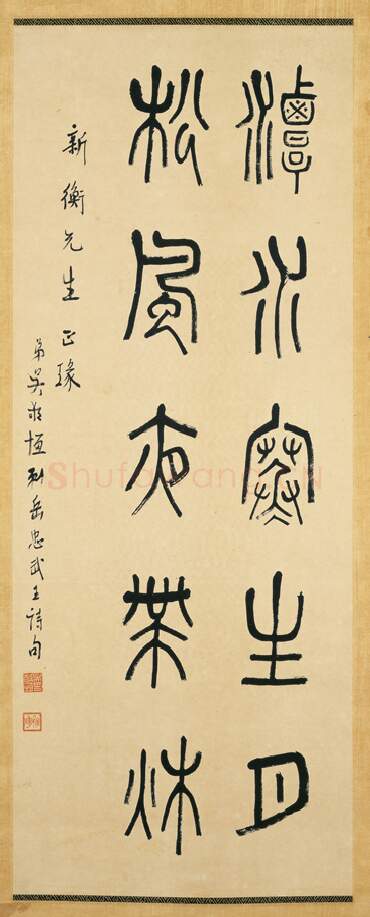 潭水寒生月
松風夜帶秋
新衡先生正瑑
弟吳敬恆 岳忠武王詩句